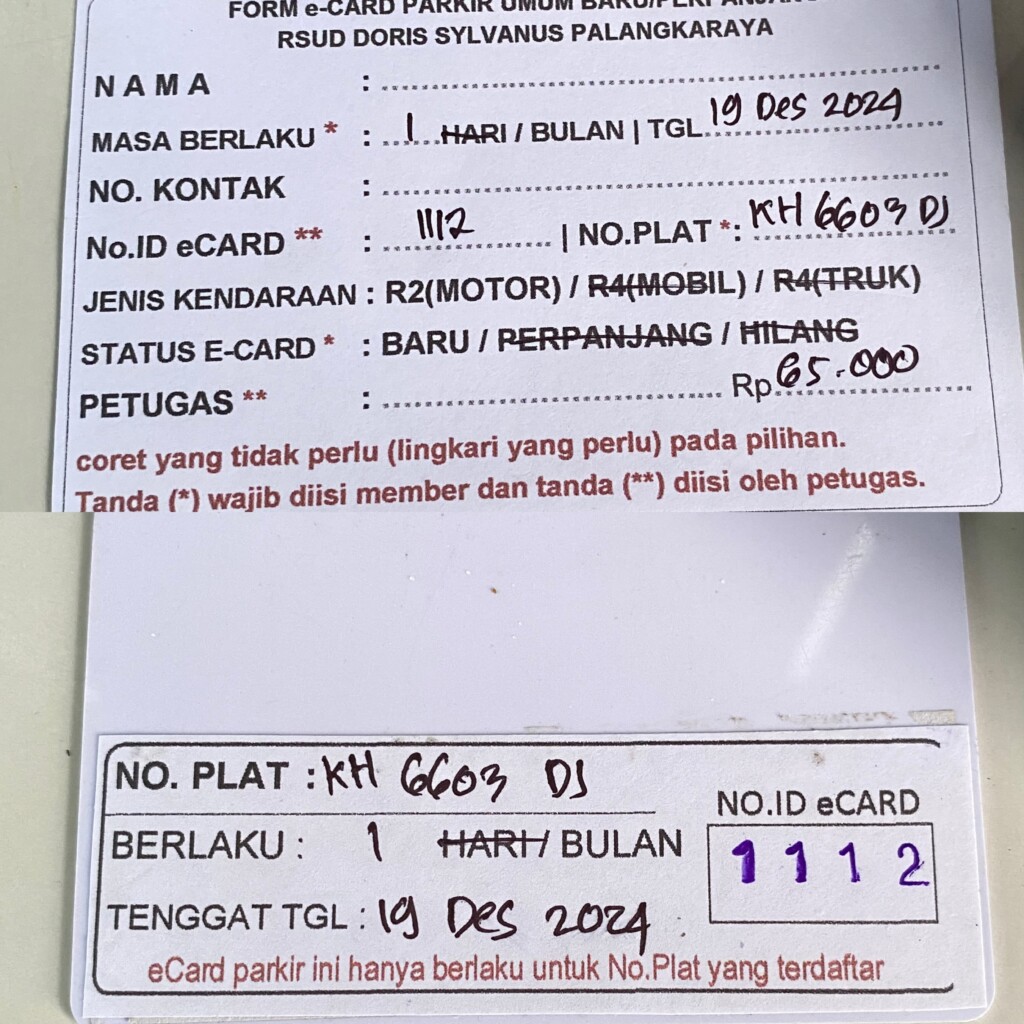 FORM e-CARD PARKIR UMUM BARU/PERPANJANG
RSUD DORIS SYLVANUS PALANGKARAYA
N A M A :
MASA BERLAKU * : 1 HARI / BULAN | TGL 19 Des 2024
NO. KONTAK :
No.ID eCARD ** : 1112 | NO.PLAT *: KH 6603 DJ
JENIS KENDARAAN : R2(MOTOR) / R4(MOBIL) / R4(TRUK)
STATUS E-CARD * : BARU / PERPANJANG / HILANG
PETUGAS ** : Rp 65.000
coret yang tidak perlu (lingkari yang perlu) pada pilihan.
Tanda (*) wajib diisi member dan tanda (**) diisi oleh petugas.
NO. PLAT : KH 6603 DJ
NO.ID eCARD
BERLAKU : 1 HARI / BULAN
1112
TENGGAT TGL : 19 Des 2024
eCard parkir ini hanya berlaku untuk No.Plat yang terdaftar